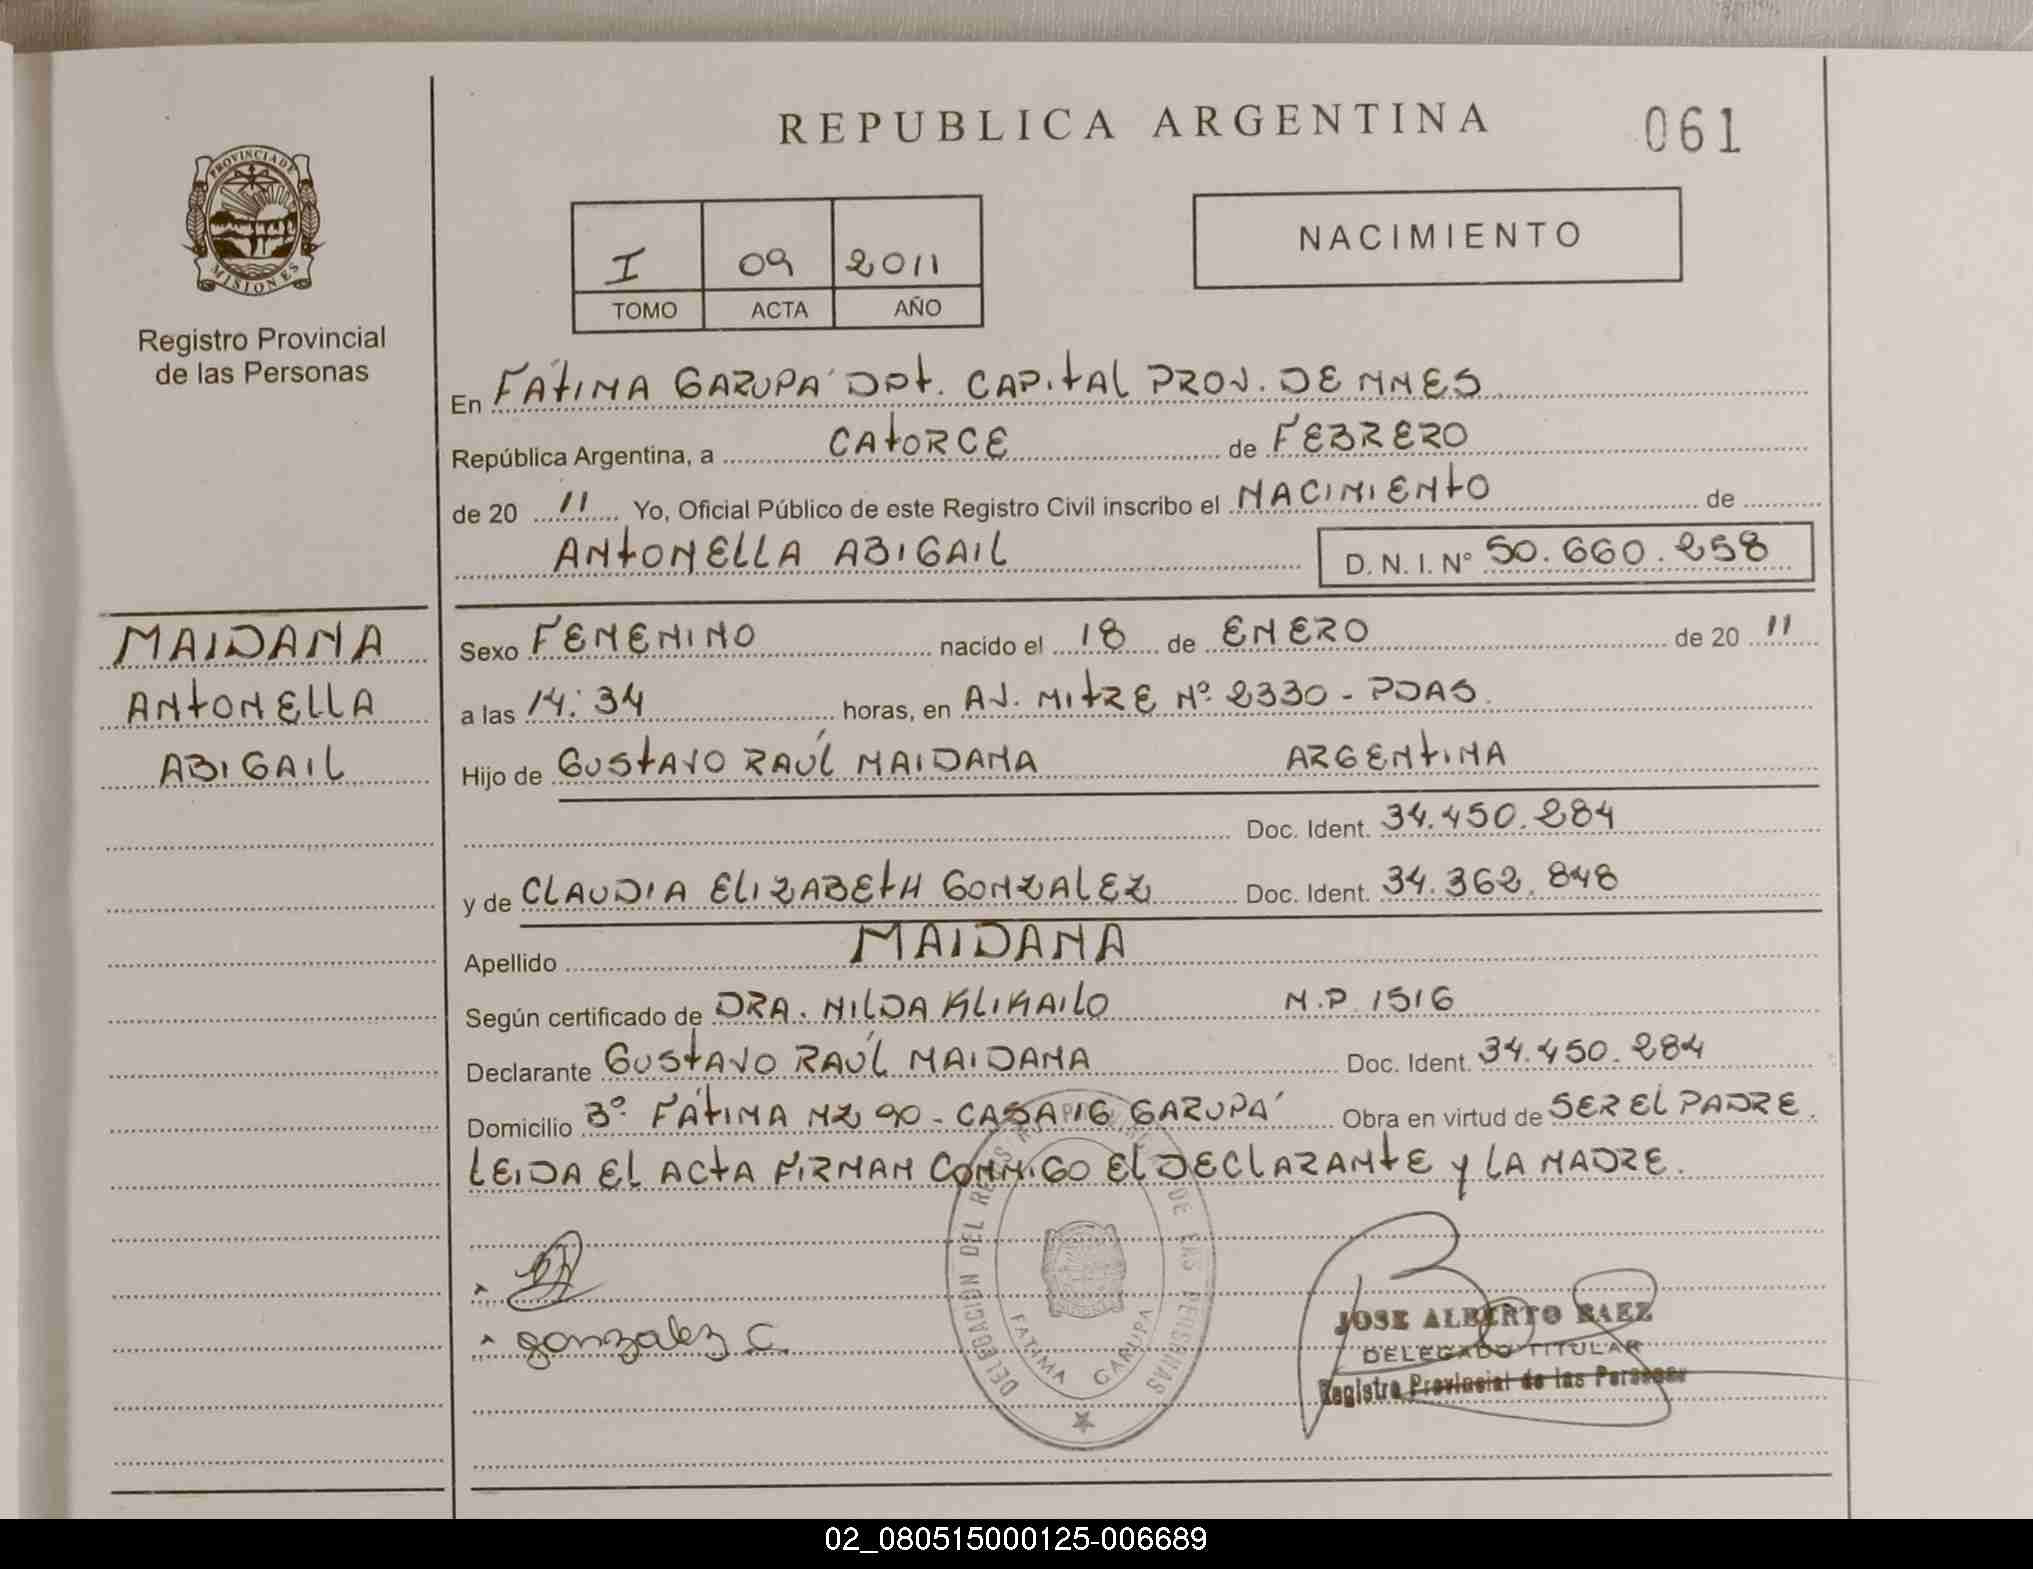 REPUBLICA ARGENTINA
061
PROVINCIA DE
MISIONES
Registro Provincial
de las Personas
I 09 2011
TOMO ACTA AÑO
NACIMIENTO
En FÁTIMA GARUPÁ DPT. CAPITAL PROV. DE MNES
República Argentina, a CATORCE de FEBRERO
de 20 11 Yo, Oficial Público de este Registro Civil inscribo el NACIMIENTO de
ANTONELLA ABIGAIL D. N. I. Nº 50.660.258
MAIDANA
ANTONELLA
ABIGAIL
Sexo FEMENINO nacido el 18 de ENERO de 20 11
a las 14:34 horas, en AV. MITRE Nº 2330 - PDAS.
Hijo de GUSTAVO RAÚL MAIDANA ARGENTINA
Doc. Ident. 34.450.284
y de CLAUDIA ELIZABETH GONZALEZ Doc. Ident. 34.362.848
Apellido MAIDANA
Según certificado de DRA. NILDA KLIKAILO M.P. 1516
Declarante GUSTAVO RAÚL MAIDANA Doc. Ident. 34.450.284
Domicilio Bº FÁTIMA MZ 90 - CASA 16 GARUPÁ Obra en virtud de SER EL PADRE.
LEIDA EL ACTA FIRMAN CONMIGO EL DECLARANTE Y LA MADRE.
gonzalez C.
DELEGACION DEL DE LAS PERSONAS
FATIMA GARUPA
JOSE ALBERTO BAEZ
DELEGADO TITULAR
Registro Provincial de las Personas
02_080515000125-006689